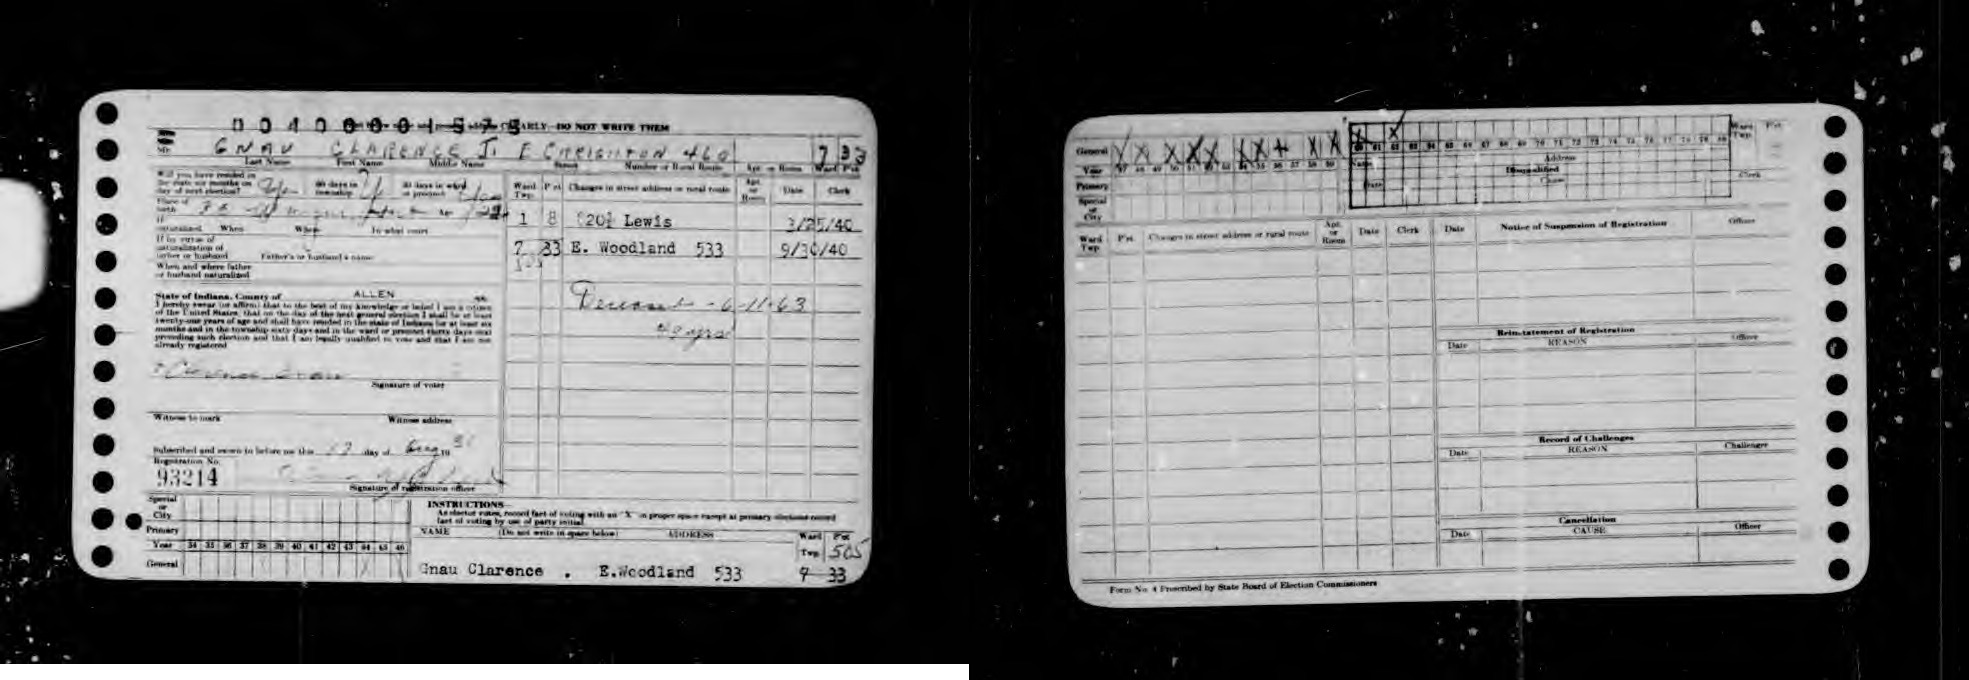 0040000 1575
CLEARLY—DO NOT WRITE THEM
GNAU CLARENCE J. E CREIGHTON 460 7 33
Last Name First Name Middle Name Street Number or Rural Route Apt. or Room Ward Pct
Will you have resided in the state six months on day of next election? Yes 60 days in township 30 days in ward or precinct
Place of birth
If naturalized When Where In what court
If by virtue of naturalization of father or husband Father's or husband's name
When and where father or husband naturalized
State of Indiana, County of ALLEN ss:
I hereby swear (or affirm) that to the best of my knowledge or belief I am a citizen
of the United States; that on the day of the next general election I shall be at least
twenty-one years of age and shall have resided in the state of Indiana for at least six
months and in the township sixty days and in the ward or precinct thirty days next
preceding such election and that I am legally qualified to vote and that I am not
already registered
Clarence Gnau
Signature of voter
Witness to mark Witness address
Subscribed and sworn to before me this 17 day of Aug 19
Registration No.
93214
Signature of registration officer
Ward Twp. Pct Changes in street address or rural route Apt. or Room Date Clerk
1 8 Lewis 3/25/40
7 33 E. Woodland 533 9/30/40
Deceased - 6-11-63
49 yrs
Special or City
Primary
Year 34 35 36 37 38 39 40 41 42 43 44 45 46
General
INSTRUCTIONS—
As elector votes, record fact of voting with an "X" in proper space except at primary elections record
fact of voting by use of party initial
NAME (Do not write in space below) ADDRESS Ward Twp. Pct
505
Gnau Clarence . E.Woodland 533 7 33
General
Year 47 48 49 50 51 52 53 54 55 56 57 58 59
Primary
Special or City
60 61 62 63 64 65 66 67 68 69 70 71 72 73 74 75 76 77 78 79 80
Ward Twp. Pct.
Name Address
Disqualified
Date Cause Clerk
Ward Twp. Pct. Changes in street address or rural route Apt. or Room Date Clerk
Date Notice of Suspension of Registration Officer
Reinstatement of Registration
Date REASON Officer
Record of Challenges
Date REASON Challenger
Cancellation
Date CAUSE Officer
Form No. 4 Prescribed by State Board of Election Commissioners